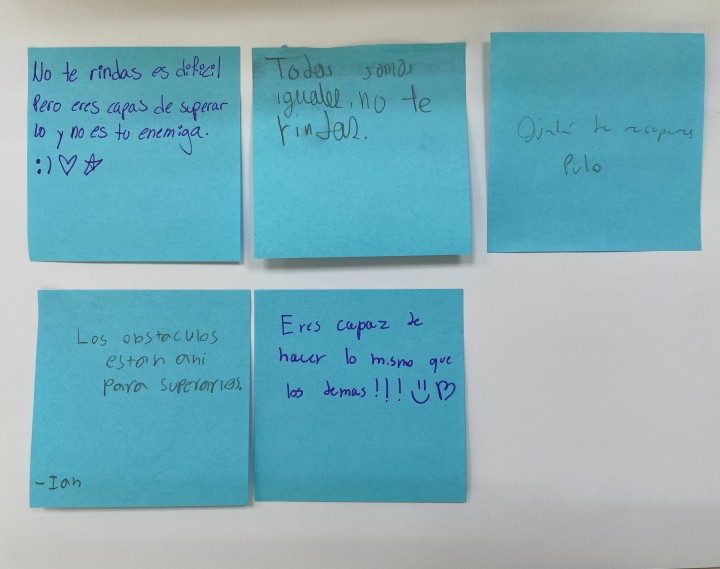 No te rindas es dificil
Pero eres capas de superar
lo y no es tu enemiga.
:) ♡ ☆
Todos somos
iguales, no te
rindas.
Ojalá te recuperes
Los obstaculos
estan ahi
para superarlos.
-Ian
Eres capaz de
hacer lo mismo que
los demas!!! :) ♡